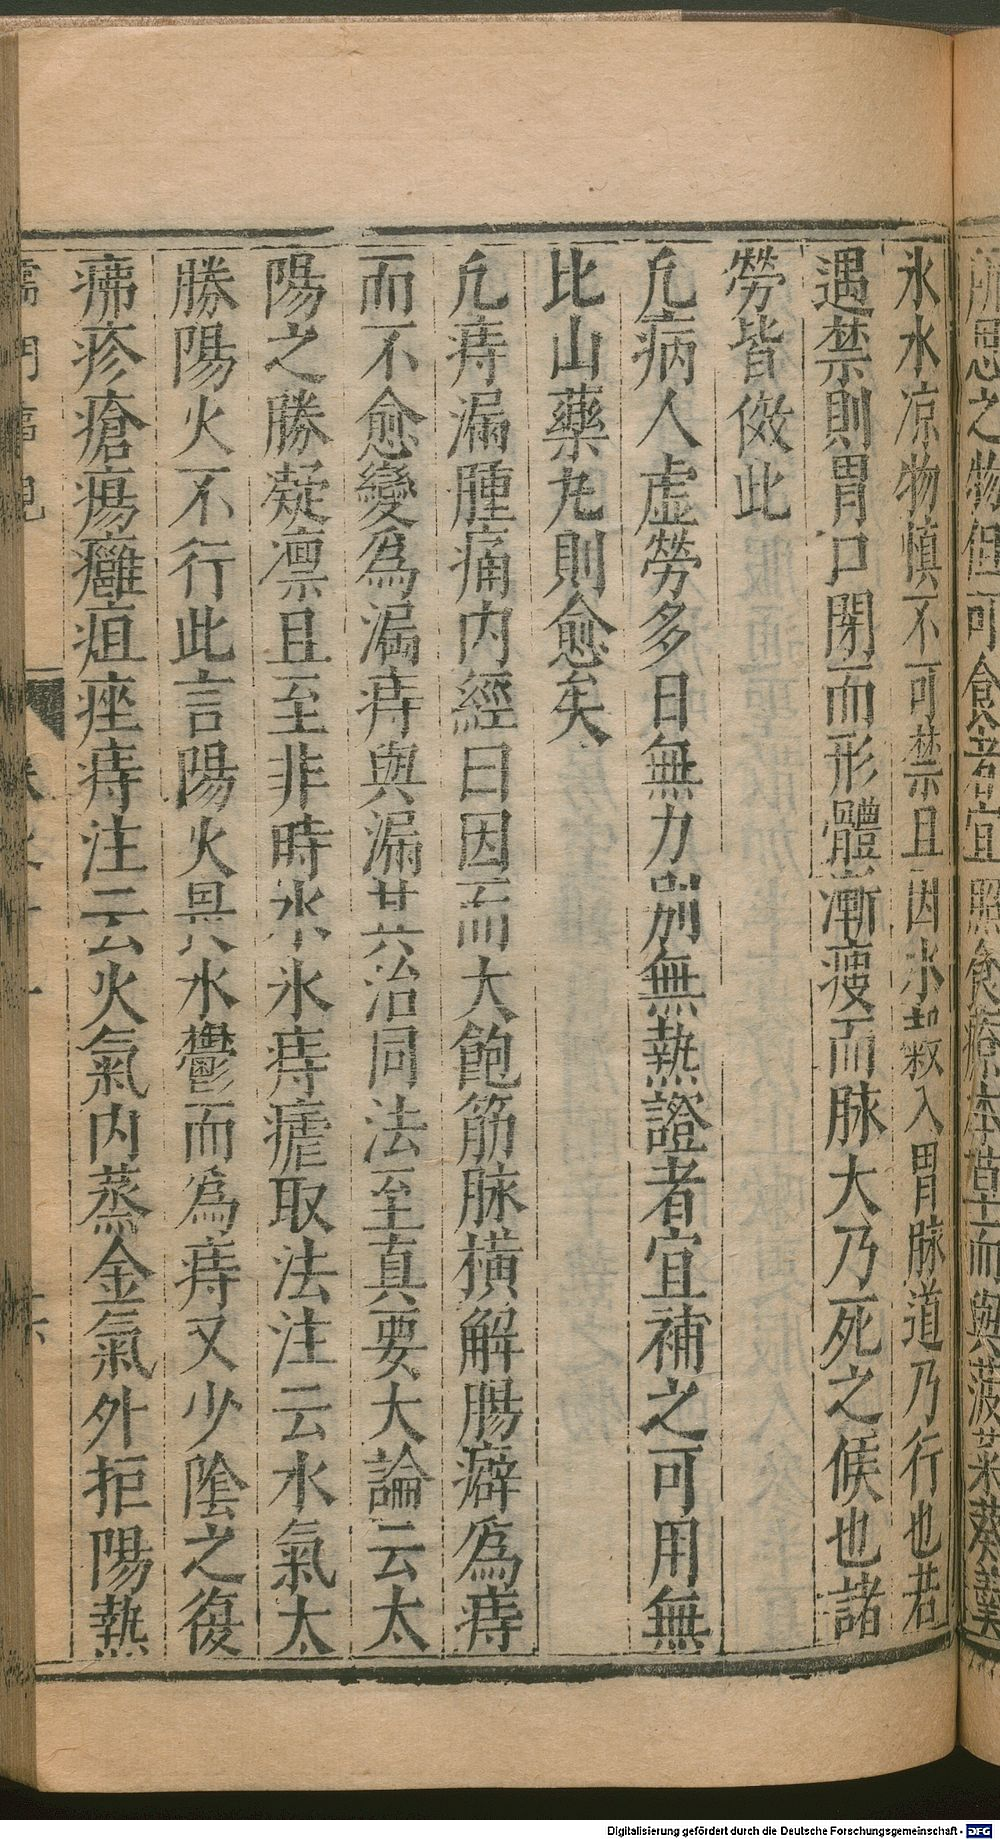 所思之物但可食者宜照食療本草而與菠菜葵羹
氷水凉物慎不可禁且因水穀入胃脉道乃行也若
遇禁則胃口閉而形體漸瘦而脉大乃死之候也諸
勞皆倣此
凢病人虚勞多日無力别無熱證者宜補之可用無
比山藥九則愈矣
凢痔漏腫痛内經曰因而大飽筋脉横解腸癖爲痔
而不愈變爲漏痔與漏其治同法至真要大論云太
陽之勝凝凛且至非時水氷痔瘧取法注云水氣太
勝陽火不行此言陽火畏水鬱而爲痔又少陰之復
疿疹瘡瘍癰疽痤痔注云火氣内蒸金氣外拒陽熱
儒門
Digitalisierung gefördert durch die Deutsche Forschungsgemeinschaft - DFG